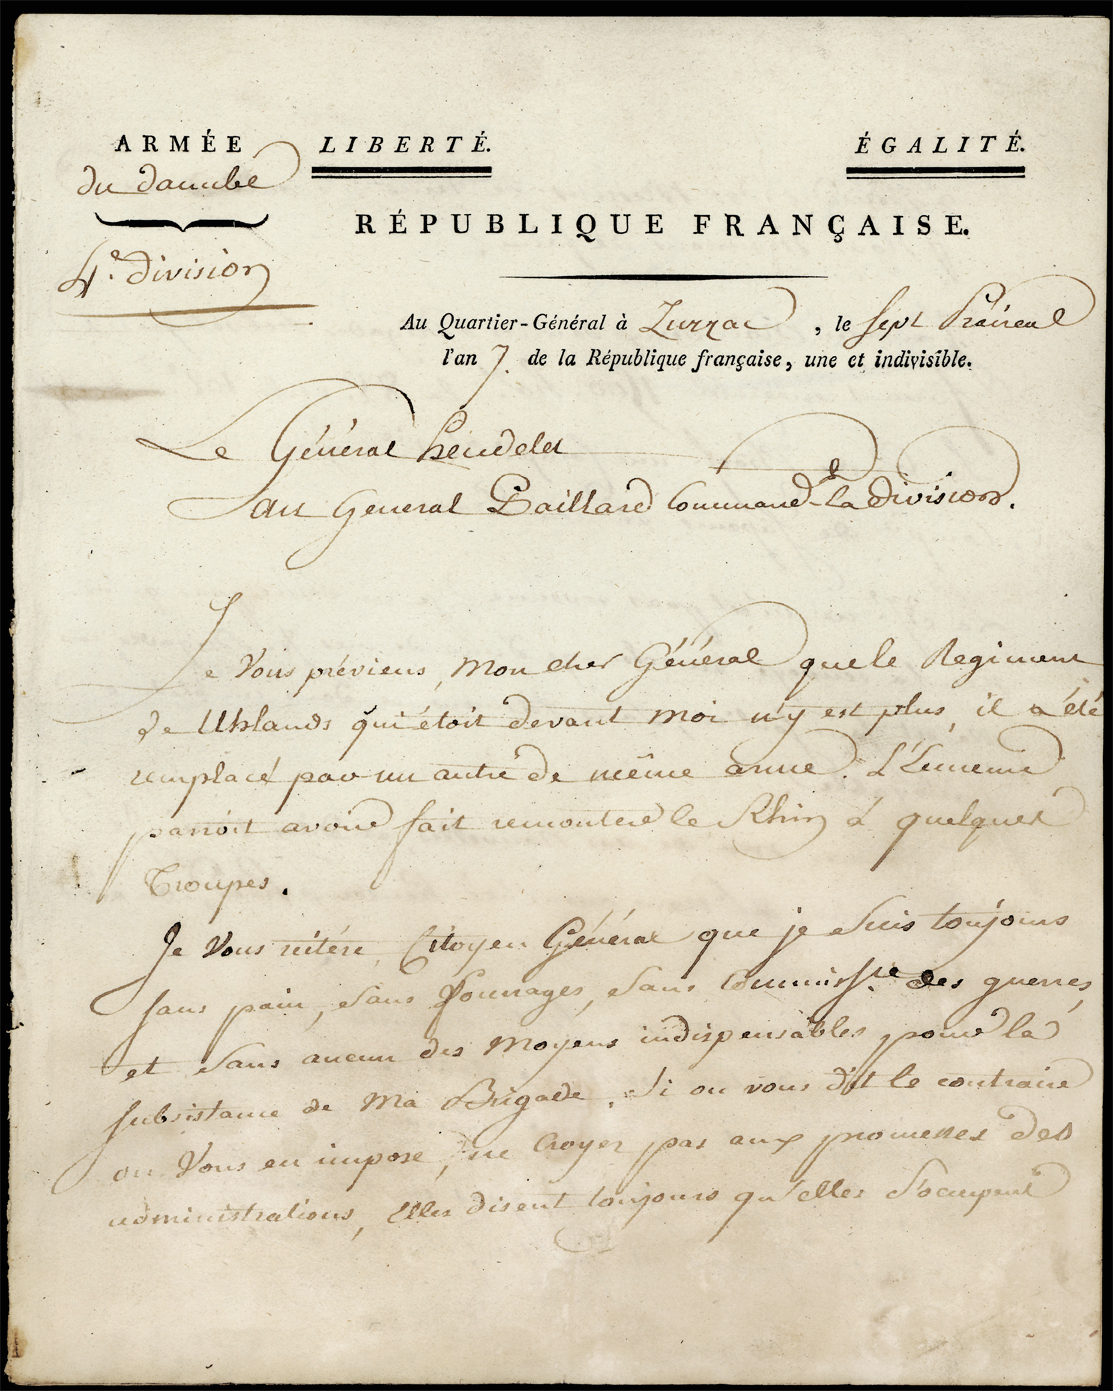 ARMÉE
du danube
4e. division
LIBERTÉ.
ÉGALITÉ.
RÉPUBLIQUE FRANÇAISE.
Au Quartier-Général à Zurzac, le sept Prairial
l'an 7. de la République française, une et indivisible.
Le Général heudelet
au General Paillard Command la division.
Je Vous préviens, Mon cher Général que le Regiment
de Uhlands qui étoit devant moi n'y est plus, il a été
remplacé par un autre de même arme. L'Ennemie
paroit avoire fait remontere le Rhin à quelques
Troupes.
Je Vous réitére, Citoyen Général que je suis toujours
sans pain, sans fourrages, sans Commissre. des guerres,
et sans aucun des Moyens indispensables pour la
subsistance de Ma Brigade, Si on vous dit le contraire
on Vous en impose, ne Croyez pas aux promesses des
administrations, Elles disent toujours qu'elles s'occupent